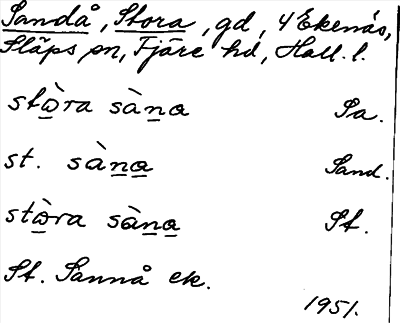 Sandå, Stora, gd, 4 Ekenäs,
Släps sn, Fjäre hd, Hall. l.
stò̱ra sàṉa̱ Sa.
st. sàṉa̱ Sand.
stò̱ra sàṉa̱ St.
St. Sannå ek.
1951.